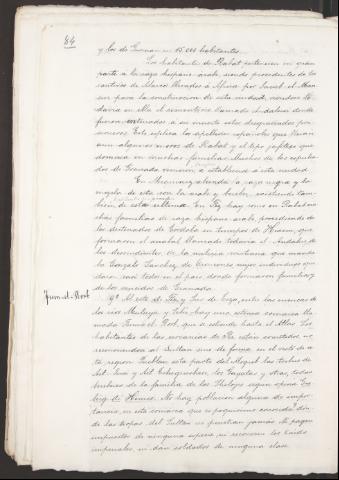 84
y los de Tetuan en 15.000 habitantes.
Los habitantes de Rabat pertenecen en gran
parte a la raza hispano-arabe, siendo procedentes de los
cautivos de Alarcos llevados a Africa por Jacub el Man
sur para la construccion de esta ciudad, viendose to
davia en ella el cementerio llamado Andaluz donde
fueron enterrados a su muerte estos desgraciados pri
sioneros. Esto esplica los apellidos españoles que llevan
aun algunos moros de Rabat y el tipo que
domina en muchas familias. Muchos de los espulsa
dos de Granada vinieron a establecerse a esta ciudad.
En abunda la raza negra y la
mezcla de esta con la arabe y bereber, existiendo tam
bien de esta ultima. En Fez hay como en Rabat mu
chas familias de raza hispano-arabe, procediendo de
los desterrados de Cordoba en tiempos de Hixem, que
formaron el arrabal llamado todavia el Andaluz, de
los descendientes de la milicia cristiana que mando
Gonzalo Sanchez de cuyos individuos que
daron casi todos en el pais donde formaron familias y
de los vencidos de Granada.
9º Al este de Fez y Sur de Taza, entre las cuencas de
los rios Muluya y Sebú hay una estensa comarca lla
mada que se estiende hasta el Atlas. Los
habitantes de las cercanias de Fez estan sometidos mas
reconociendose al Sultan una de forma en el resto de es
ta region. Pueblan esta parte del Mogreb las tribus de
Ait Ait los y otras, todas
tribus de la familia de los segun opina
de Hemso. No hay poblacion alguna de impor
tancia, en esta comarca que es poquisimo conocida don
de las tropas del Sultan no penetran jamás. No pagan
impuestos de ninguna especie, ni reconocen los caids
imperiales, ni dan soldados de ninguna clase.